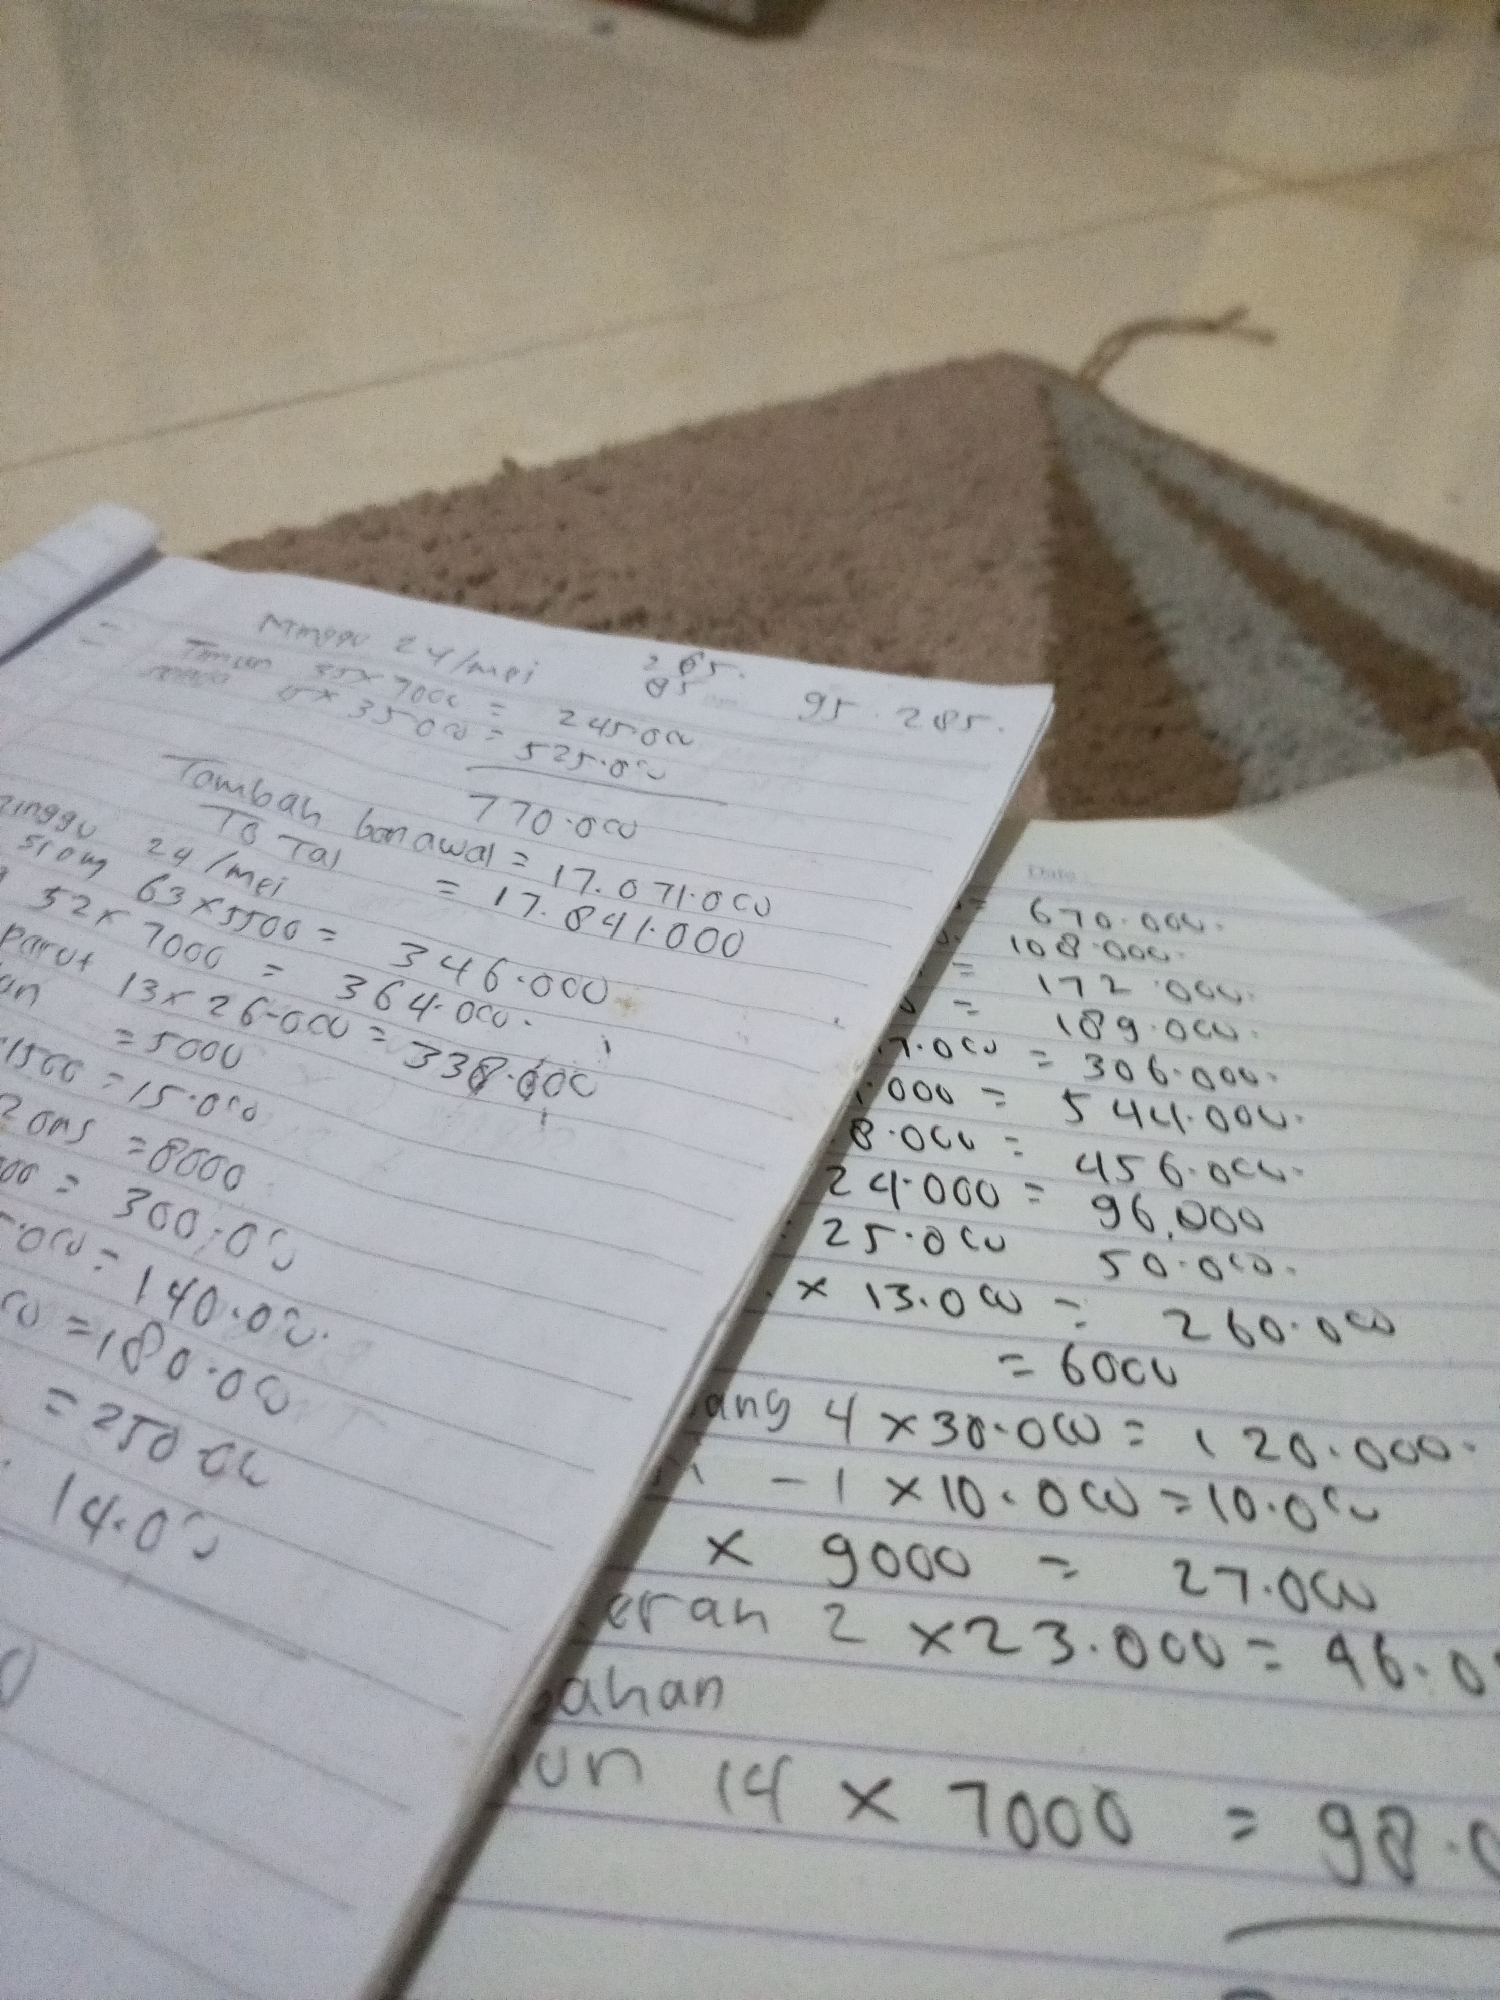 Minggu 24/mei
265.
85
95 . 285.
Timun 35 x 7000 = 245.000
x 35000 = 525.000
770.000
Tambah bon awal = 17.071.000
To Tal = 17.841.000
24/mei
63 x 5500 = 346.000
52 x 7000 = 364.000.
Parut 13 x 26.000 = 338.000
= 5000
1500 = 15.000
2 ons = 8000
= 300.000
= 140.000.
= 180.000
= 250.000
14.000
Date :
= 670.000.
108.000.
= 172.000.
= 189.000.
7.000 = 306.000.
.000 = 544.000.
8.000 = 456.000.
24.000 = 96.000
25.000 50.000.
x 13.000 = 260.000
= 6000
ang 4 x 30.000 = 120.000.
- 1 x 10.000 = 10.000
x 9000 = 27.000
eran 2 x 23.000 = 46.0
ahan
un 14 x 7000 = 98.0